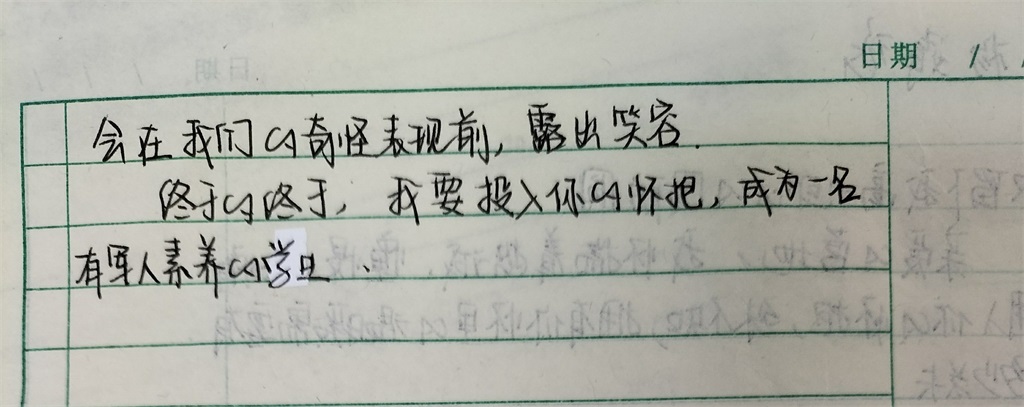 日期 /
会在我们的奇怪表现前，露出笑容.
终于的终于，我要投入你的怀抱，成为一名
有军人素养的学